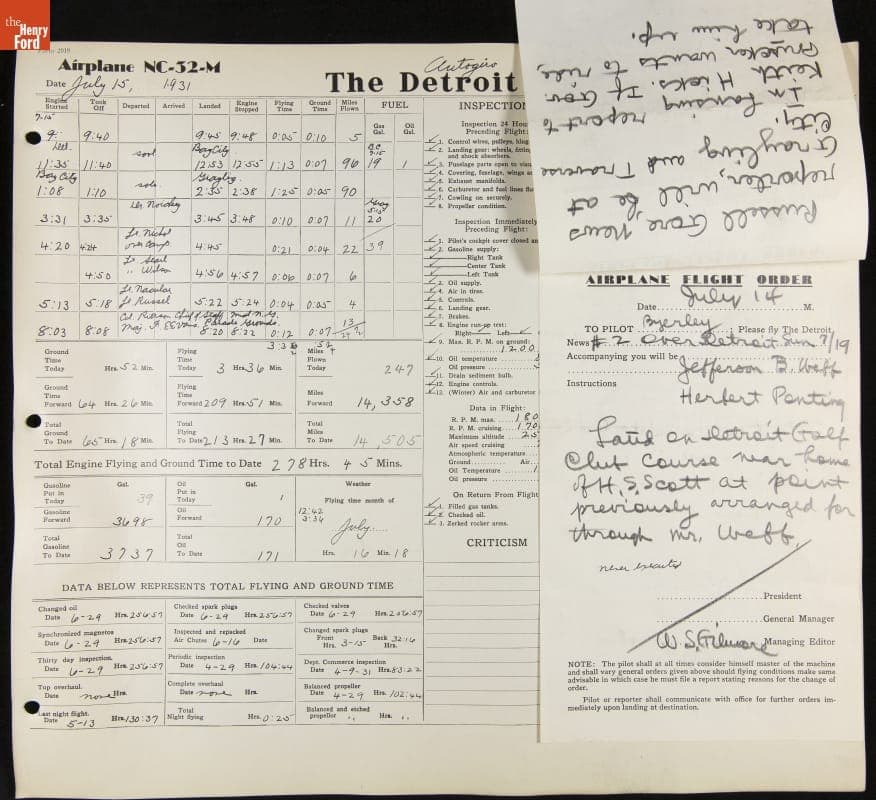 the
Henry
Ford
Airplane NC-52-M
Autogiro
Date July 15, 1931
The Detroit
Engine Started
Took Off
Departed
Arrived
Landed
Engine Stopped
Flying Time
Ground Time
Miles Flown
FUEL
Gas Gal.
Oil Gal.
7-15
9: 9:40 9:45 9:48 0:05 0:10 5
Bay City
11:35 11:40 12:53 12:55 1:13 0:07 96 19 1
Bay City solo Grayling
1:08 1:10 2:35 2:38 1:25 0:05 90
3:31 3:35 3:45 3:48 0:10 0:07 11 20
Lt. Nichol
4:20 4:24 over Camp 4:45 0:21 0:04 22 39
" Wilson
4:50 4:56 4:57 0:06 0:07 6
5:13 5:18 Lt. Russel 5:22 5:24 0:04 0:05 4
8:03 8:08 Parade Grounds 8:20 8:22 0:12 0:07 13
Ground Time Today Hrs. 52 Min.
Flying Time Today 3 Hrs. 36 Min.
Miles Flown Today 247
Ground Time Forward 64 Hrs. 26 Min.
Flying Time Forward 209 Hrs. 51 Min.
Miles Forward 14,358
Total Ground Time To Date 65 Hrs. 18 Min.
Total Flying Time To Date 213 Hrs. 27 Min.
Total Miles To Date 14,505
Total Engine Flying and Ground Time to Date 278 Hrs. 45 Mins.
Gasoline Put in Today Gal. 39
Oil Put in Today Gal. 1
Weather
Flying time month of
Gasoline Forward 3698
Oil Forward 170
12:42
3:36
July
Total Gasoline To Date 3737
Total Oil To Date 171
Hrs. 16 Min. 18
DATA BELOW REPRESENTS TOTAL FLYING AND GROUND TIME
Changed oil Date 6-29 Hrs. 256:57
Checked spark plugs Date 6-29 Hrs. 256:57
Checked valves Date 6-29 Hrs. 256:57
Synchronized magnetos Date 6-29 Hrs. 256:57
Inspected and repacked Air Chutes 6-16 Date
Changed spark plugs Front Hrs. 3-15 Back Hrs. 32:16
Thirty day inspection. Date 6-29 Hrs. 256:57
Periodic inspection Date 4-29 Hrs. 104:44
Dept. Commerce inspection Date 4-9-31 Hrs. 83:22
Top overhaul. Date none Hrs.
Complete overhaul Date none Hrs.
Balanced propeller Date 4-29 Hrs. 102:44
Last night flight. Date 5-13 Hrs. 130:37
Total Night flying Hrs. 0:25
Balanced and etched propeller " Hrs. "
INSPECTION
Inspection 24 Hour
Preceding Flight:
1. Control wires, pulleys, hing
2. Landing gear: wheels, fitting
and shock absorbers.
3. Fuselage parts open to vis
4. Covering, fuselage, wings a
5. Exhaust manifolds.
6. Carburetor and fuel lines f
7. Cowling on securely.
8. Propeller condition.
Inspection Immediately
Preceding Flight:
1. Pilot's cockpit cover closed an
2. Gasoline supply:
Right Tank
Center Tank
Left Tank
3. Oil supply.
4. Air in tires.
5. Controls.
6. Landing gear.
7. Brakes.
8. Engine run-up test:
Right Left
9. Max. R. P. M. on ground
1200
10. Oil temperature
Oil pressure
11. Drain sediment bulb.
12. Engine controls.
13. (Winter) Air and carburetor
Data in Flight:
R. P. M. max. 180
R. P. M. cruising 170
Maximum altitude 25
Air speed cruising
Atmospheric temperature
Ground Air
Oil Temperature
Oil pressure
On Return From Flight
1. Filled gas tanks.
2. Checked oil.
3. Zerked rocker arms.
CRITICISM
Russell Gore, News
reporter, will be at
Grayling and Traverse
City.
In Lansing report to
Keith Hicks. If Gov.
Brucker wants to ride,
take him up.
AIRPLANE FLIGHT ORDER
Date July 14 M.
TO PILOT Byerley : Please fly The Detroit
News # 2 over Detroit Sun 7/19
Accompanying you will be Jefferson B. Webb
Herbert Ponting
Instructions
Land on Detroit Golf
Club Course near home
of H. S. Scott at point
previously arranged for
through Mr. Webb.
never executed
President
General Manager
W. S. Gilmore Managing Editor
NOTE: The pilot shall at all times consider himself master of the machine
and shall vary general orders given above should flying conditions make same
advisable in which case he must file a report stating reasons for the change of
order.
Pilot or reporter shall communicate with office for further orders im-
mediately upon landing at destination.